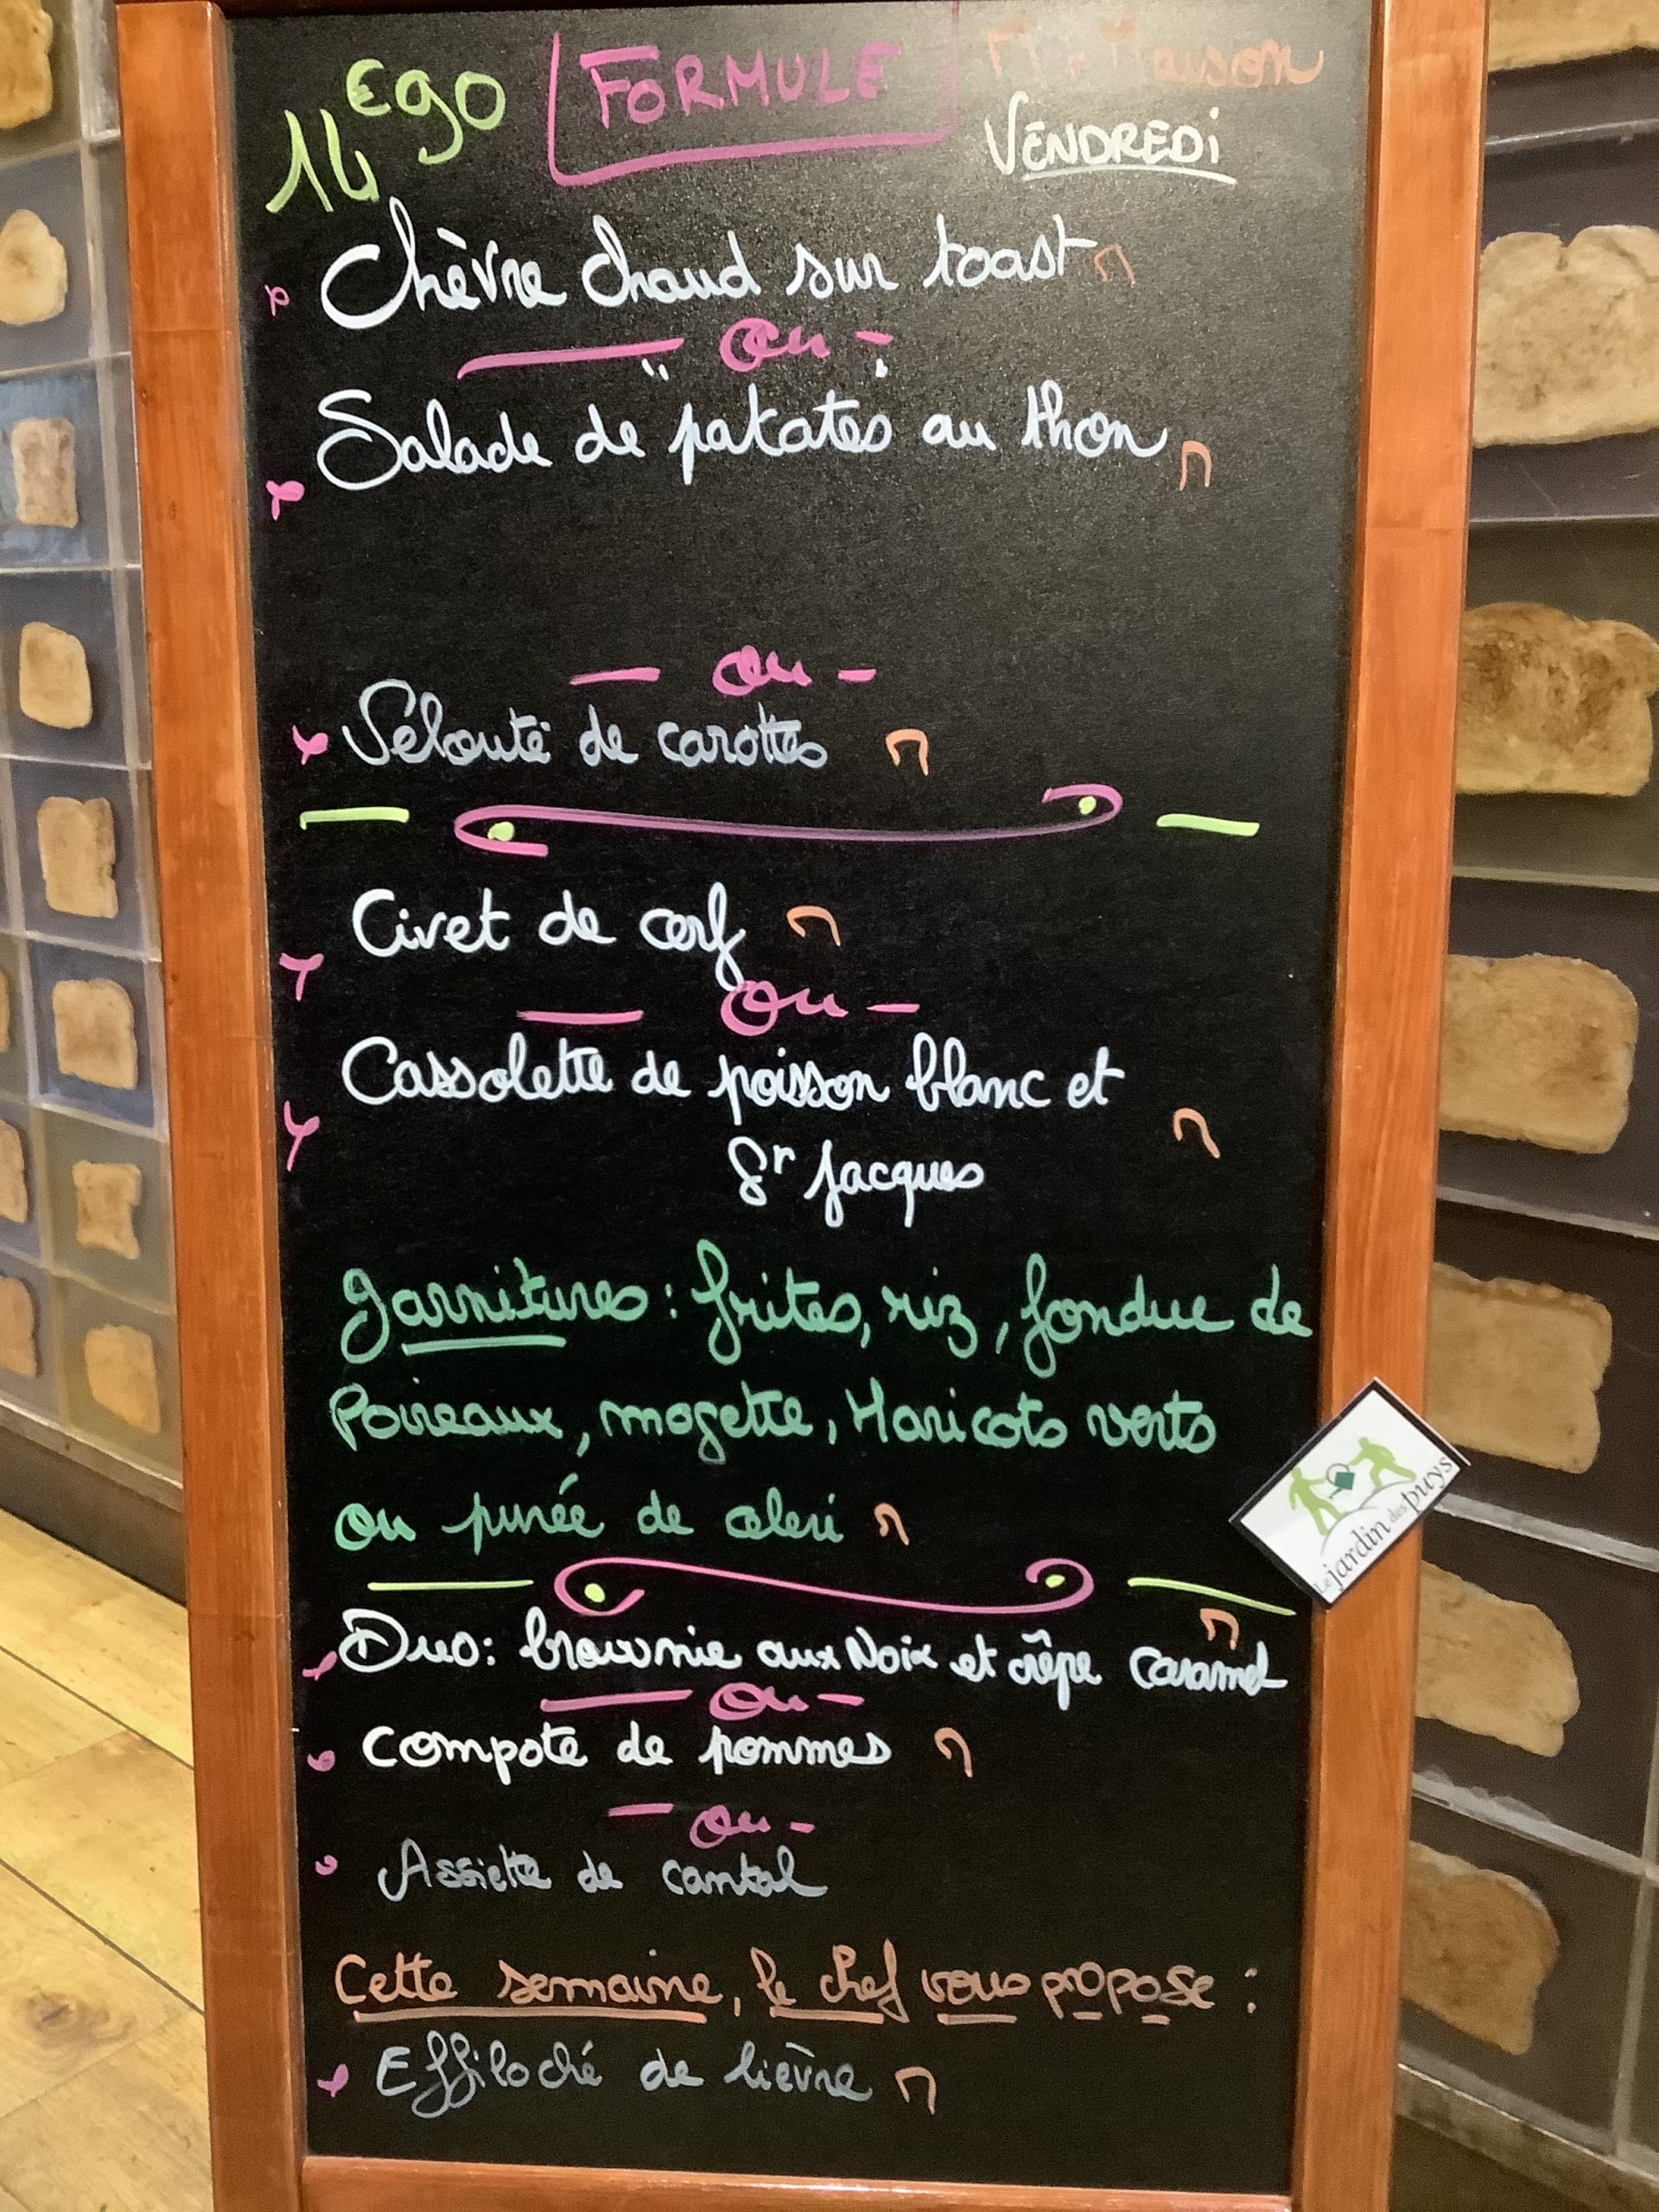 14€90 FORMULE M: Maison
VENDREDI
Chèvre chaud sur toast M
ou
Salade de "patates" au thon M
ou
Velouté de carottes M
Civet de cerf M
ou
Cassolette de poisson blanc et
St Jacques M
Garnitures : frites, riz, fondue de
Poireaux, mogette, Haricots verts
ou purée de celeri M
Duo: brownie aux Noix et crêpe caramel M
ou
compote de pommes M
ou
Assiette de cantal
Cette semaine, le chef vous propose :
Effiloché de lièvre M
Le jardin des puys